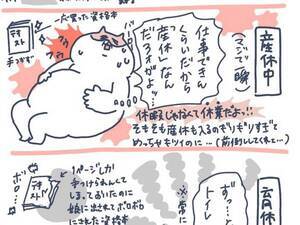 産休中
(マジで瞬)
仕事できん
くらいだから
「産休」なん
だろオがよォッ…
一応買った資格本
テキスト
手つかず
休暇じゃなくて休業だよ…!!
そもそも産休も入るのぎりぎりすぎて
めっちゃキツイのに…(前倒ししてくれ…)
育休
ずっ…と
トイレ
※常に
ボロ…
テキスト
1ページしか
手つけられんして
しまってるいたのに
娘に出されてボロボロ
にされた資格本